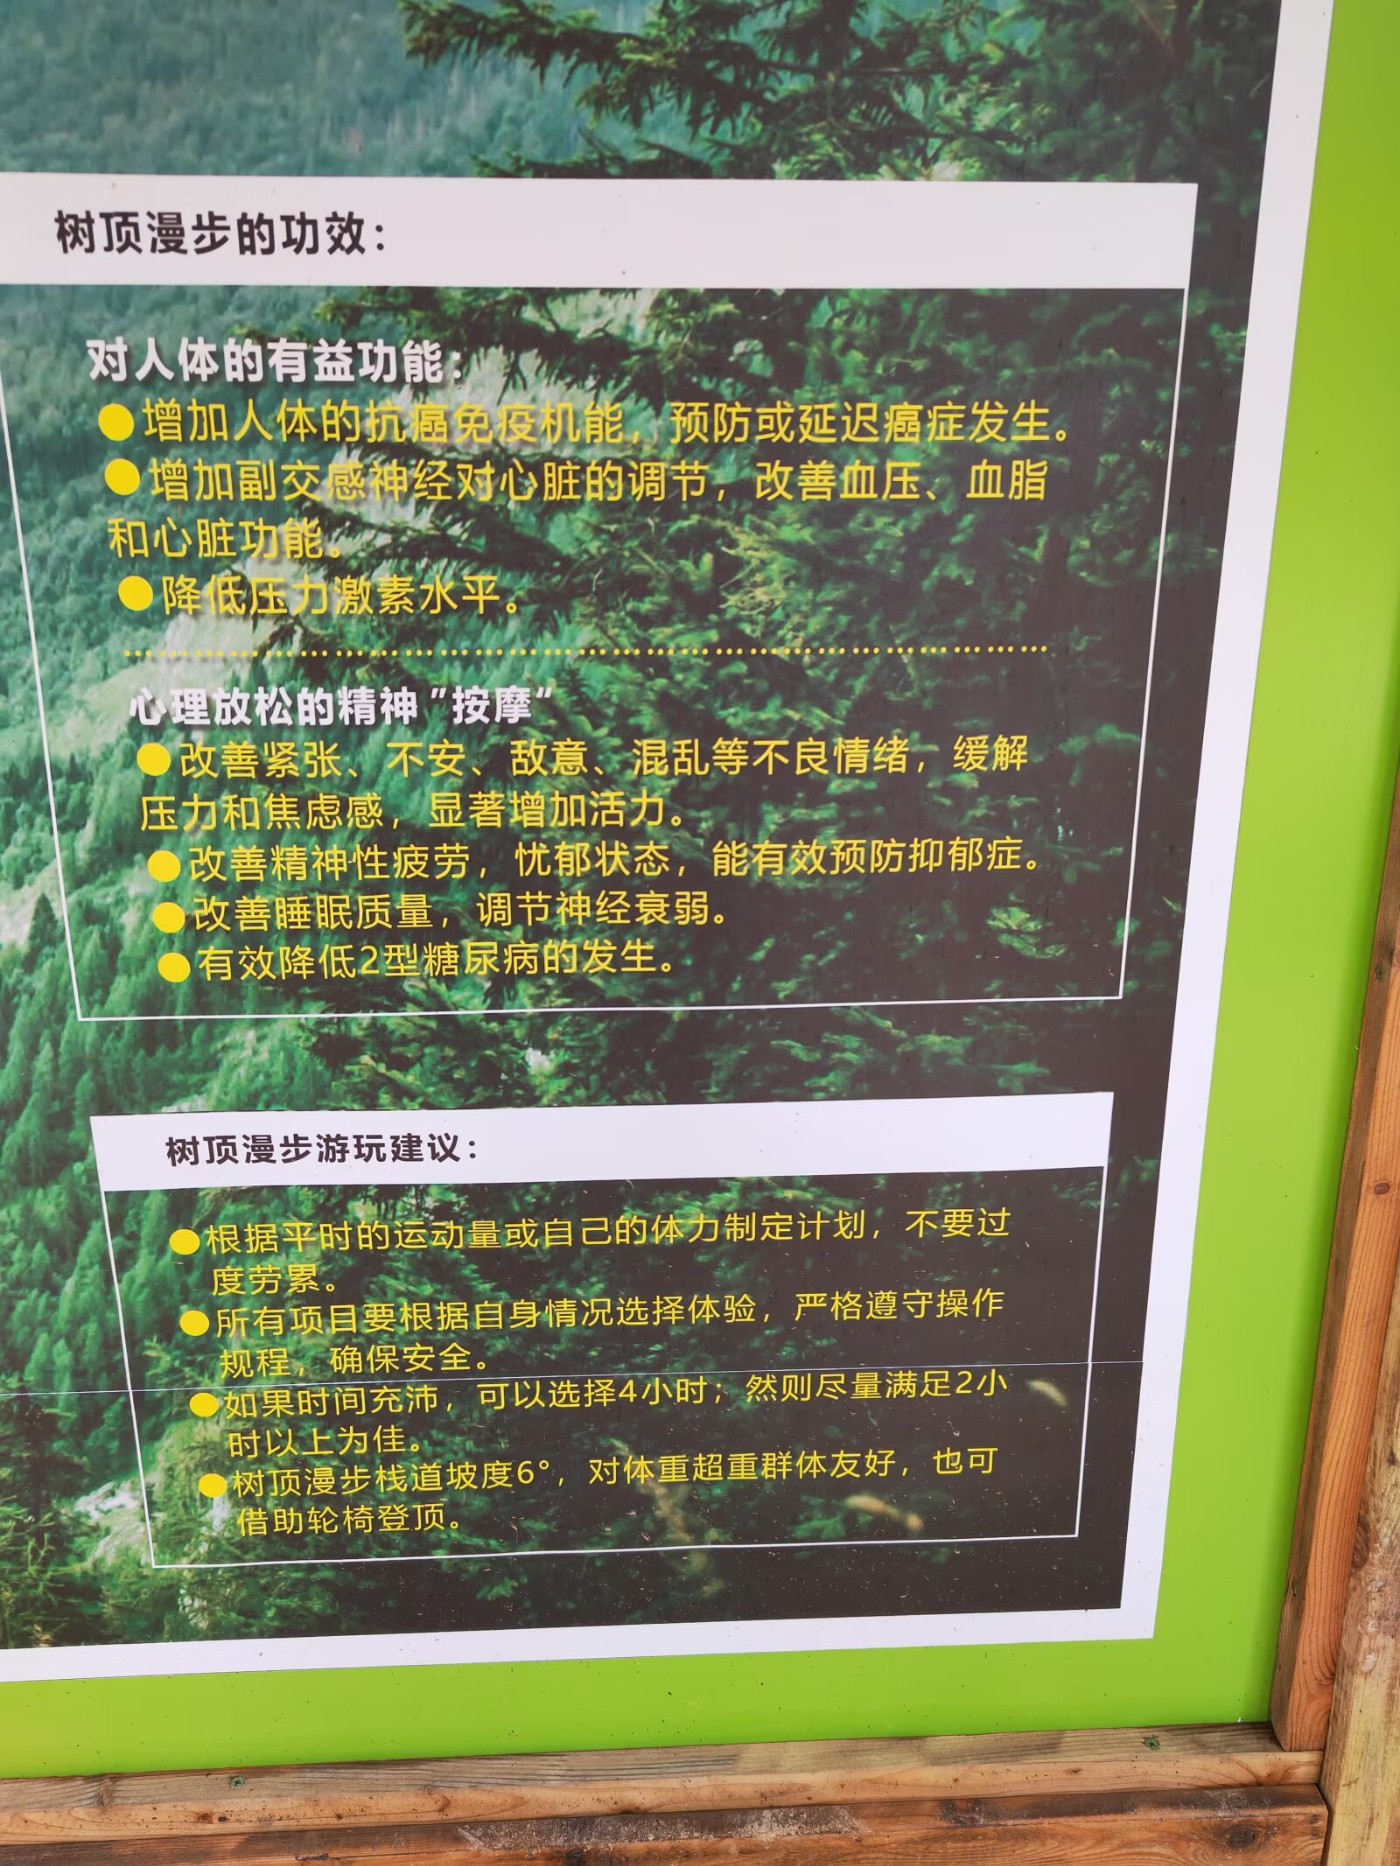 树顶漫步的功效：
对人体的有益功能：
●增加人体的抗癌免疫机能，预防或延迟癌症发生。
●增加副交感神经对心脏的调节，改善血压、血脂
和心脏功能。
●降低压力激素水平。
心理放松的精神”按摩“
●改善紧张、不安、敌意、混乱等不良情绪，缓解
压力和焦虑感，显著增加活力。
●改善精神性疲劳，忧郁状态，能有效预防抑郁症。
●改善睡眠质量，调节神经衰弱。
●有效降低2型糖尿病的发生。
树顶漫步游玩建议：
●根据平时的运动量或自己的体力制定计划，不要过
度劳累。
●所有项目要根据自身情况选择体验，严格遵守操作
规程，确保安全。
●如果时间充沛，可以选择4小时；然则尽量满足2小
时以上为佳。
●树顶漫步栈道坡度6°，对体重超重群体友好，也可
借助轮椅登顶。